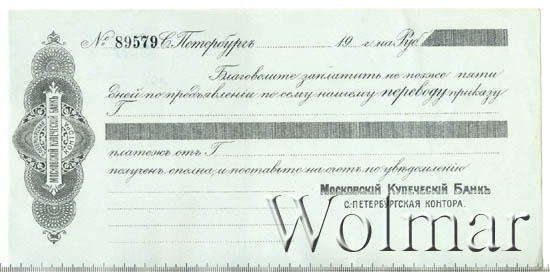 № 89579 С. Петербургъ 19 г на Руб.
Благоволите заплатить не позже пяти
дней по предъявленіи по сему нашему переводу приказу
Г
платежъ отъ Г.
полученъ сполна, и поставьте на счетъ по увѣдомленію
Московскій Купеческій Банкъ
С.-Петербургская Контора.
Московскій Купеческій Банкъ
Wolmar